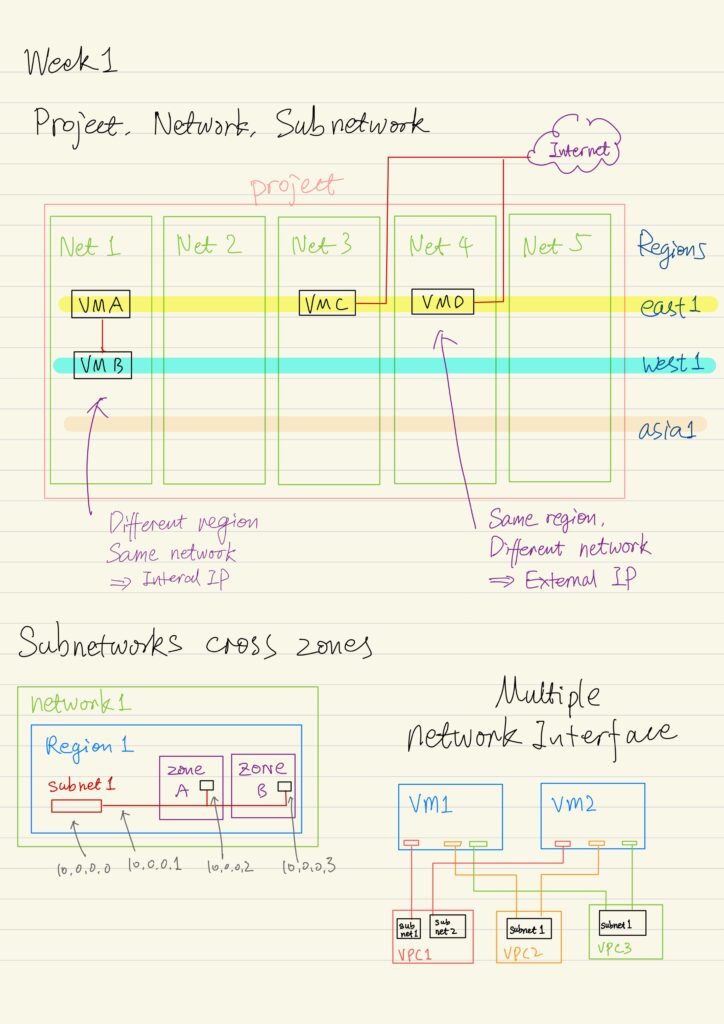 Week 1
Project, Network, Subnetwork
Internet
project
Net 1 Net 2 Net 3 Net 4 Net 5 Regions
VMA VMC VMD east1
VMB west1
asia1
Different region
Same network
⇒ Interal IP
Same region,
Different network
⇒ External IP
Subnetworks cross zones
network1
Region 1
subnet1
zone
A
zone
B
10,0,0,0 10,0.0.1 10,0,0,2 10,0,0,3
Multiple
network Interface
VM1 VM2
sub
net1
sub
net2
subnet1
subnet1
VPC1 VPC2 VPC3